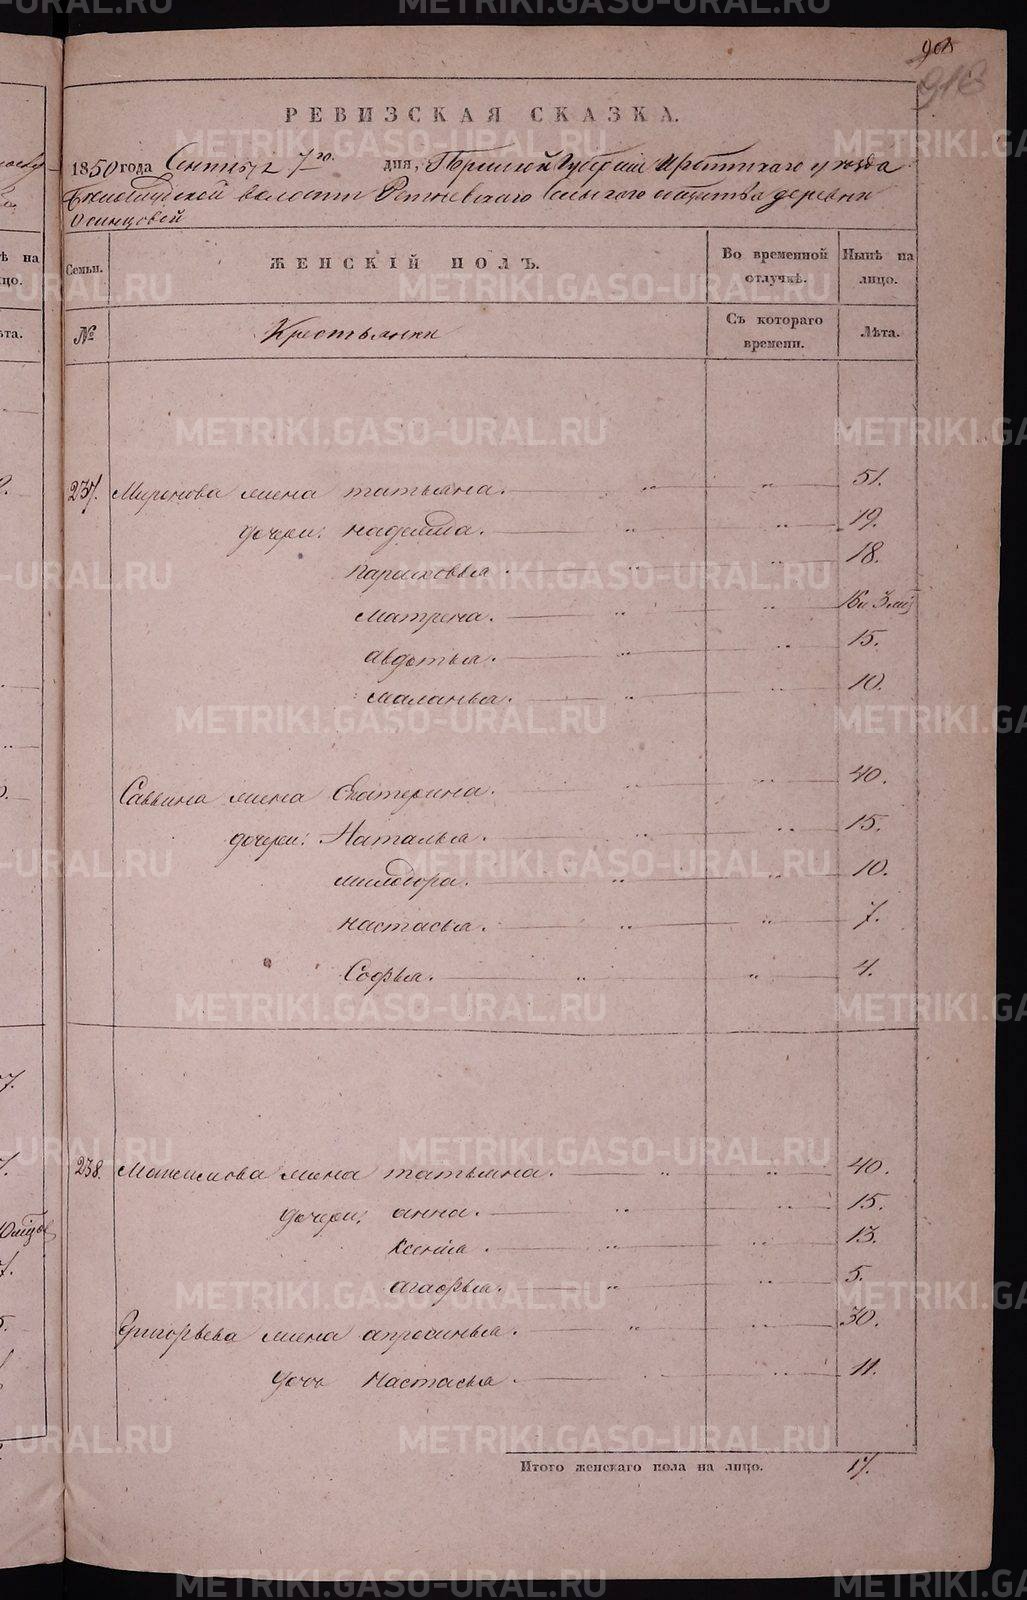 908
918
РЕВИЗСКАЯ СКАЗКА.
1850 года Сентября 7го. дня, Пермской Губерніи Ирбитскаго уѣзда
Белослудской волости Ретневскаго сельскаго общества деревни
Осинцовой
Семьи. ЖЕНСКІЙ ПОЛЪ. Во временной отлучкѣ. Нынѣ на лицо.
№ Крестьянки Съ котораго времени. Лѣта.
237. Миронова жена татьяна. 51.
дочери: надежда. 19.
парасковья. 18.
матрена. 16 и 3 мѣ
авдотья. 15.
маланья. 10.
Саввина жена Екатерина. 40.
дочери: Наталья. 15.
милодора. 10.
настасья. 7.
Софья. 4.
238. Максимова жена татьяна. 40.
дочери: анна. 15.
ксенія. 13.
агафья. 5.
Григорьева жена апросинья. 30.
дочь настасья. 11.
Итого женскаго пола на лицо. 17.
METRIKI.GASO-URAL.RU